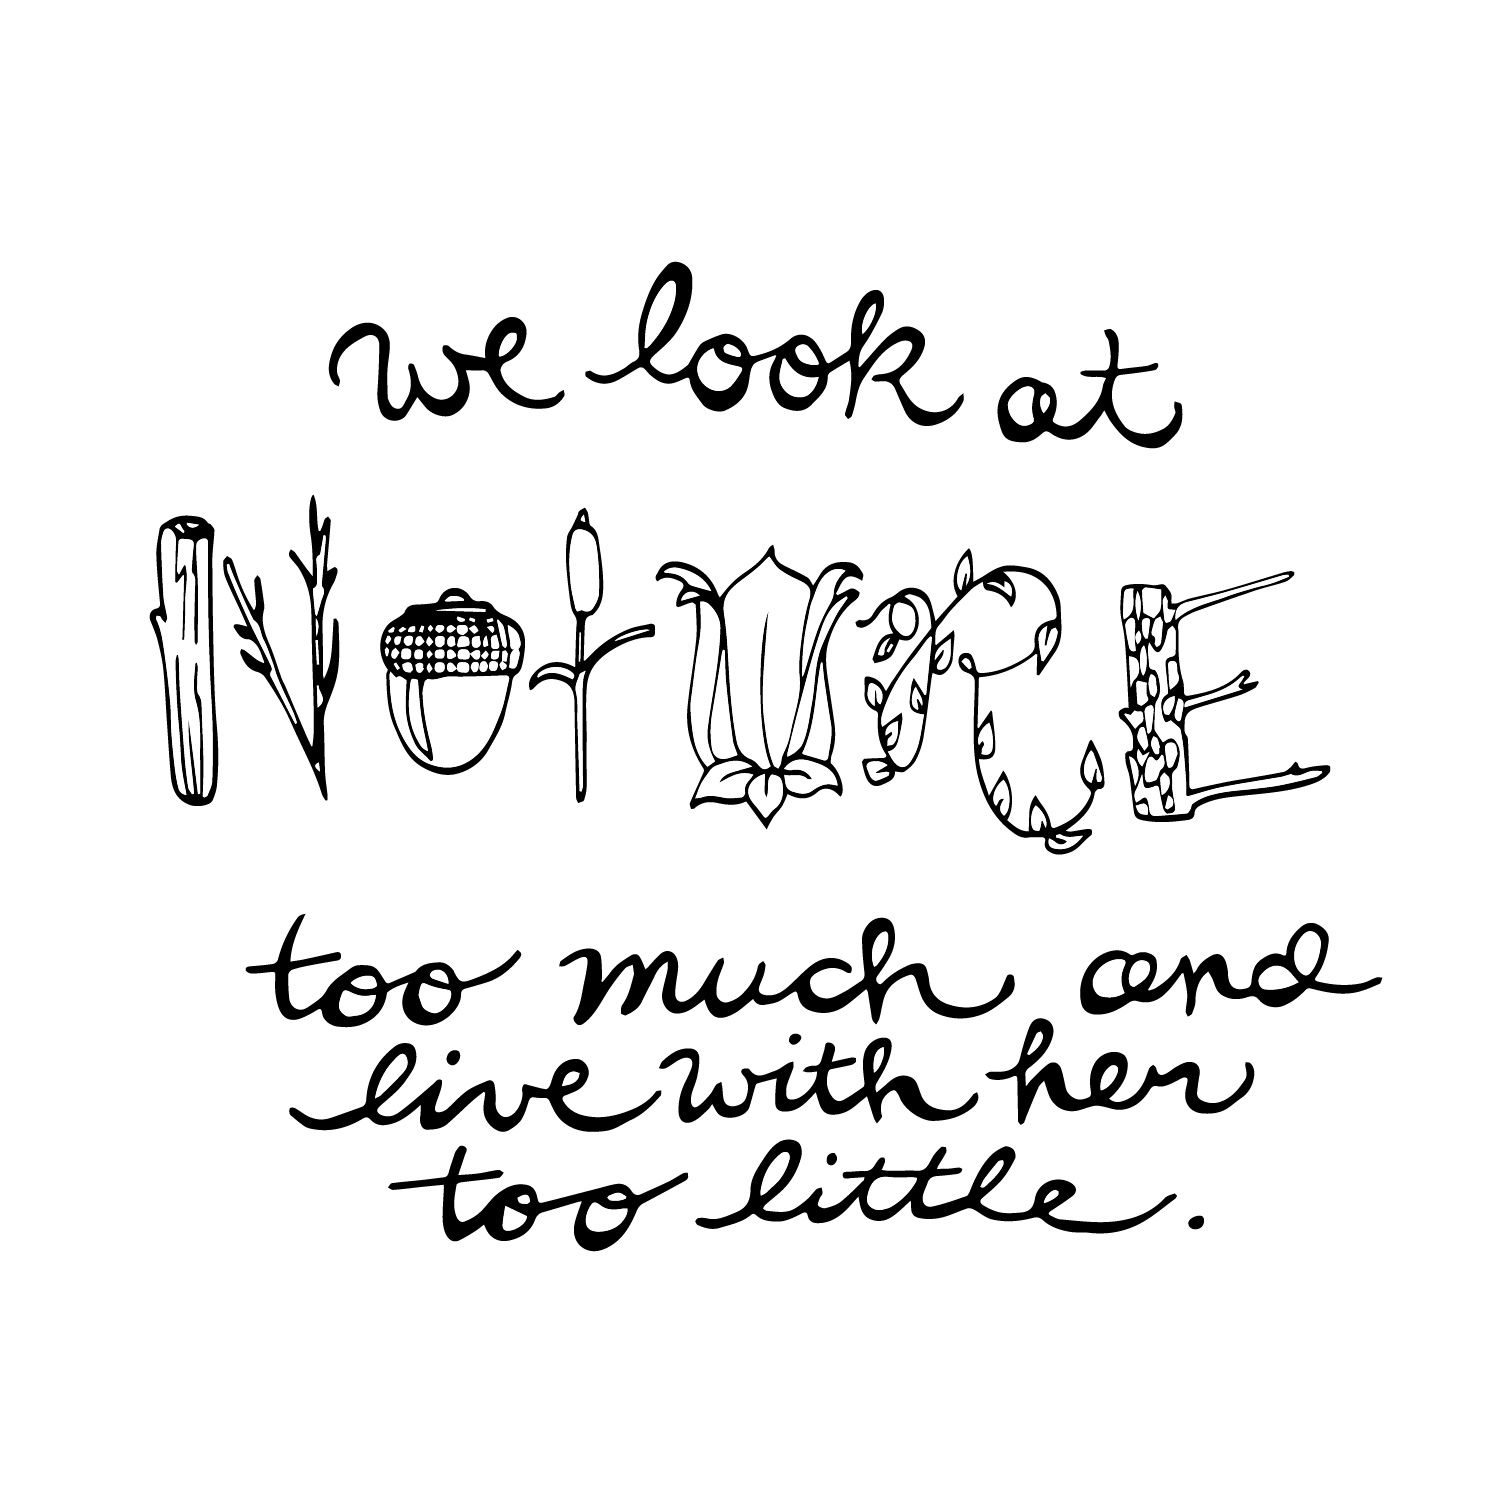 we look at
NatuRE
too much and
live with her
too little.